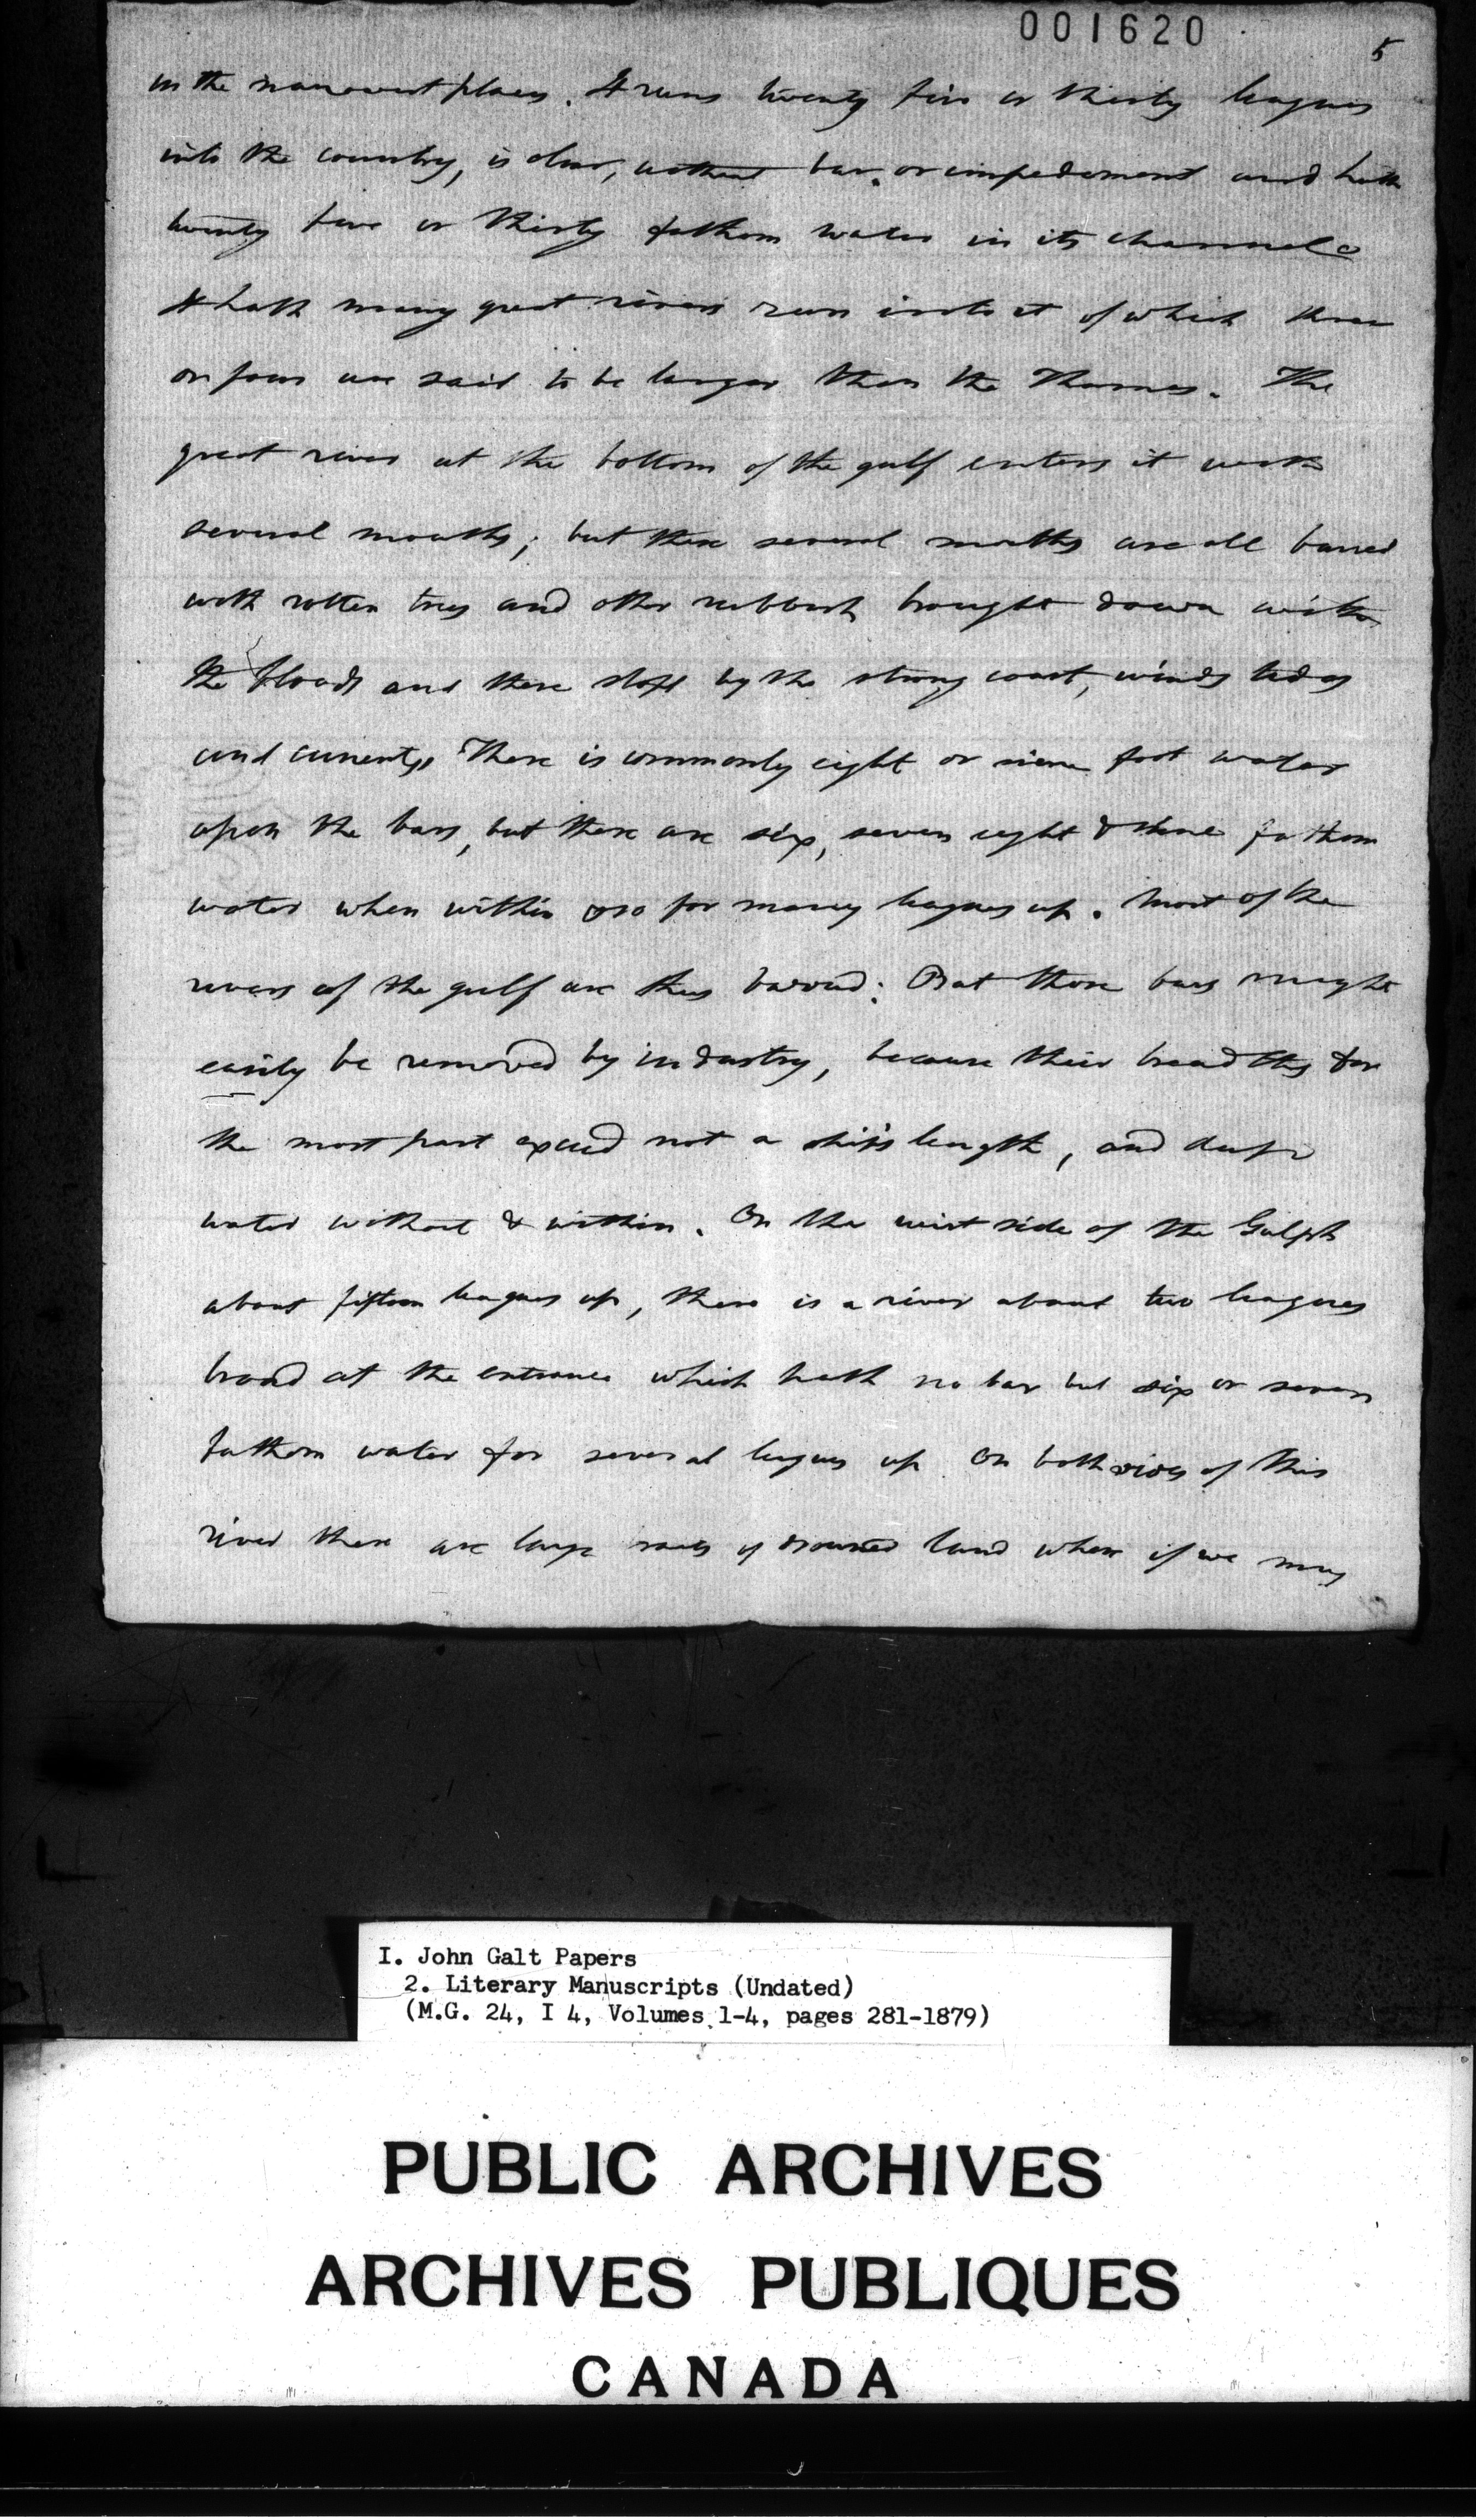 001620
5
in the narrowest places. It runs twenty five or thirty leagues
into the country, is clear, without bar, or impediment and hath
twenty five or thirty fathom water in its channel
It hath many great rivers run into it of which three
or four are said to be larger than the Thames. The
great river at the bottom of the gulf enters it with
several mouths; but these several mouths are all barred
with rotten trees and other rubbish brought down with
the floods and there stopt by the strong coast, winds tides
and currents. There is commonly eight or nine foot water
upon the bars, but there are six, seven eight & nine fathom
water when within & so for many leagues up. Most of the
rivers of the gulf are thus barred: But those bars might
easily be removed by industry, because their breadths for
the most part exceed not a ship's length, and deep
water without & within. On the west side of the Gulph
about fifteen leagues up, there is a river about two leagues
broad at the entrance which hath no bar but six or seven
fathom water for several leagues up On both sides of this
river there are large of drowned land where if we may
I. John Galt Papers
2. Literary Manuscripts (Undated)
(M.G. 24, I 4, Volumes 1-4, pages 281-1879)
PUBLIC ARCHIVES
ARCHIVES PUBLIQUES
CANADA